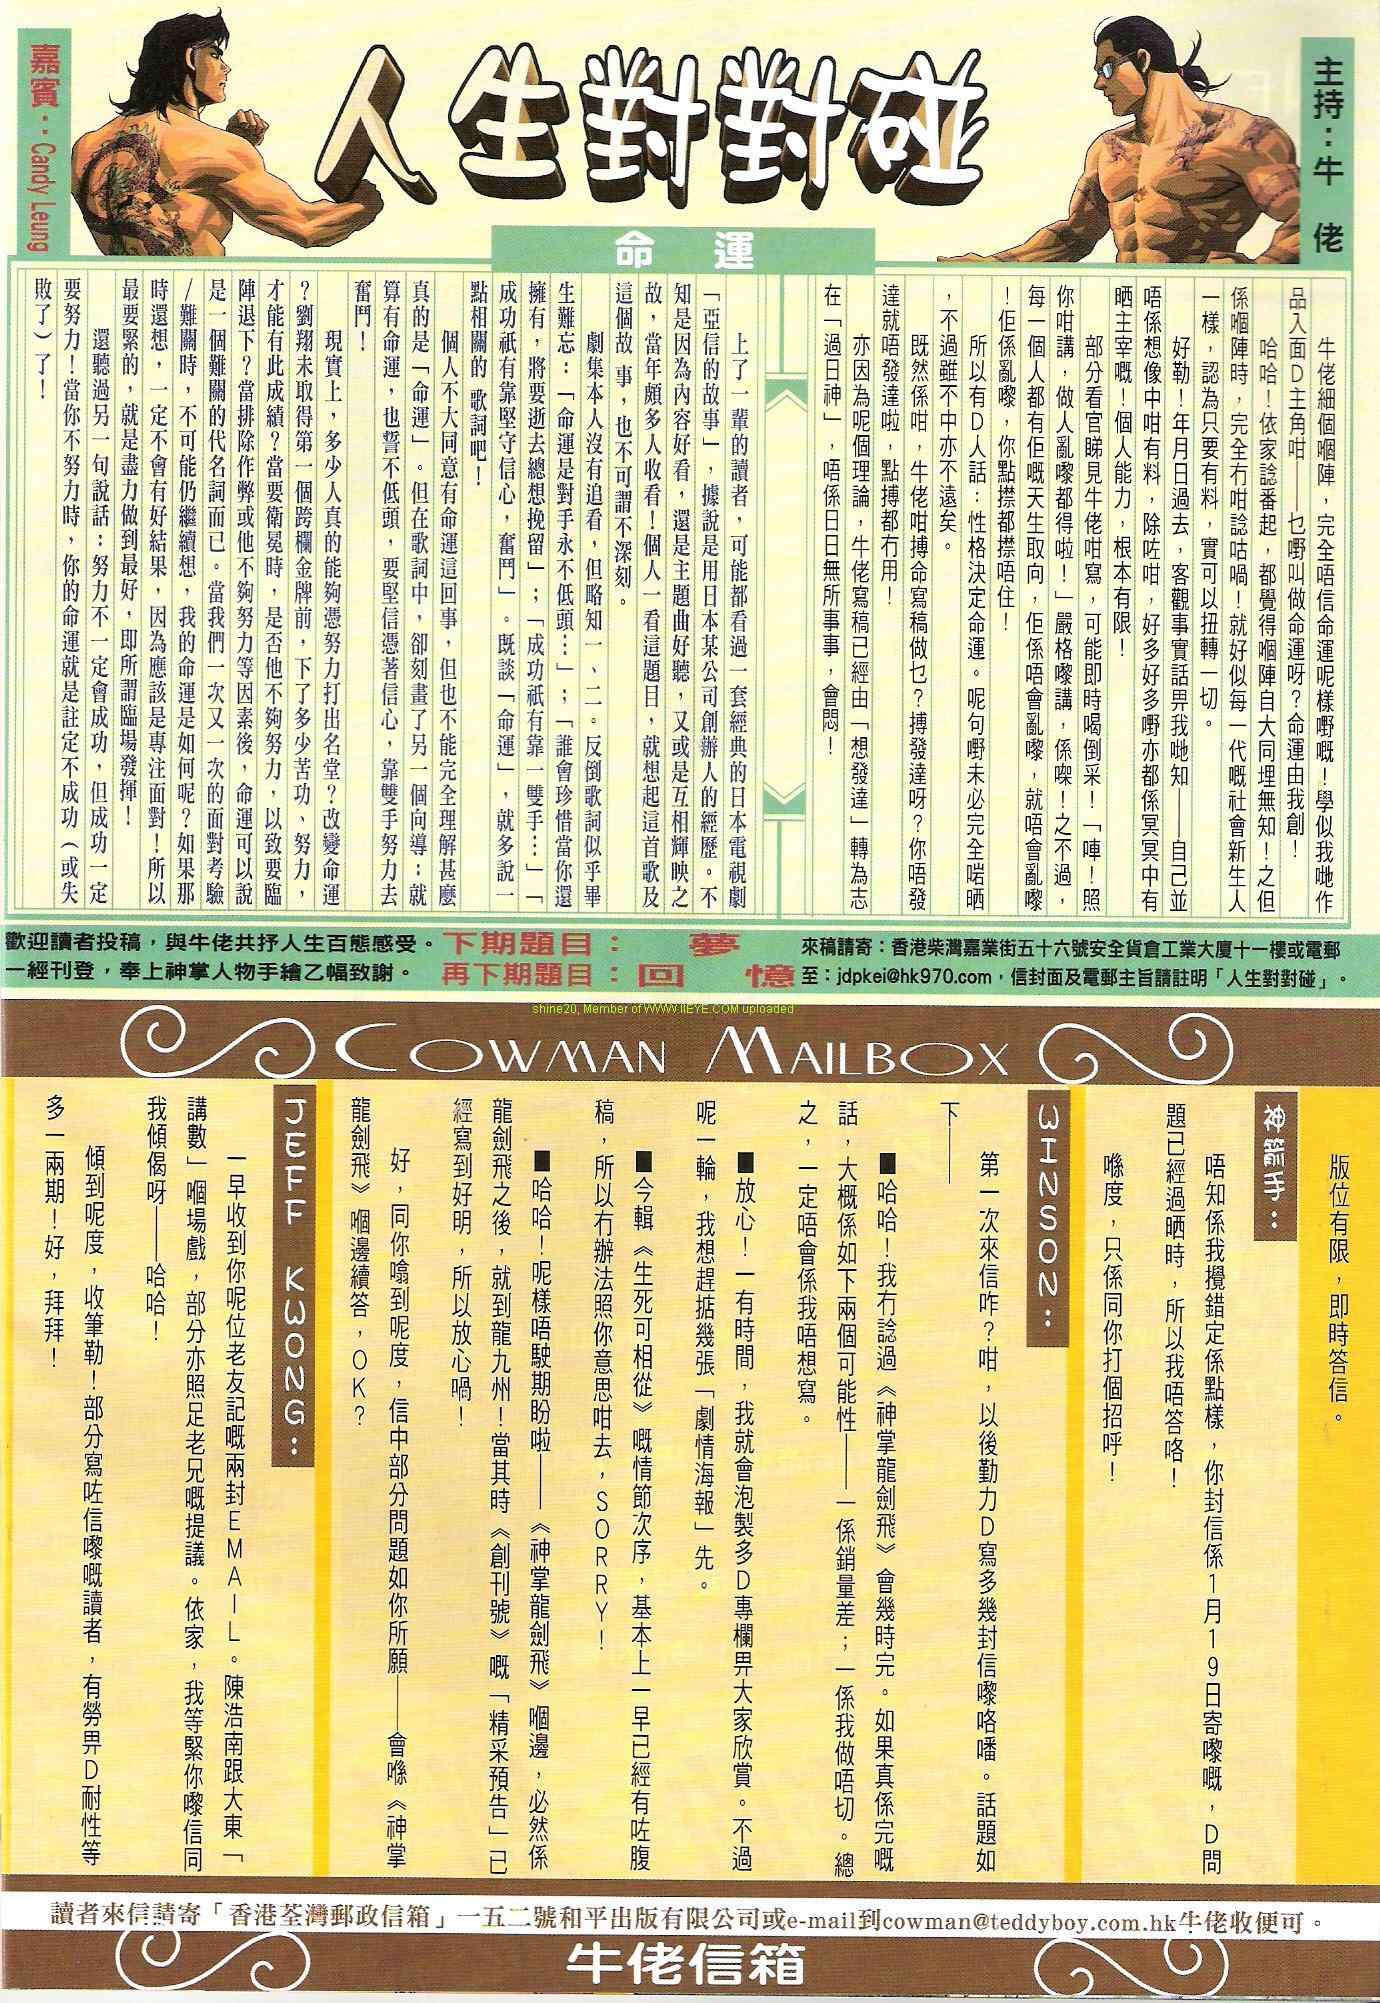 主持：牛佬
人生對對碰
嘉賓：Candy Leung
命運
牛佬細個嗰陣，完全唔信命運呢樣嘢嘅！學似我哋作
品入面D主角咁——乜嘢叫做命運呀？命運由我創！
哈哈！依家諗番起，都覺得嗰陣自大同埋無知！之但
係嗰陣時，完全冇咁諗咕喎！就好似每一代嘅社會新生人
一樣，認為只要有料，實可以扭轉一切。
好勒！年月日過去，客觀事實話畀我哋知——自己並
唔係想像中咁有料，除咗咁，好多好多嘢亦都係冥冥中有
晒主宰嘅！個人能力，根本有限！
部分看官睇見牛佬咁寫，可能即時喝倒采！「唓！照
你咁講，做人亂嚟都得啦！」嚴格嚟講，係㗎！之不過，
每一個人都有佢嘅天生取向，佢係唔會亂嚟，就唔會亂嚟
！佢係亂嚟，你點㩒都㩒唔住！
所以有D人話：性格決定命運。呢句嘢未必完全啱晒
，不過雖不中亦不遠矣。
既然係咁，牛佬咁搏命寫稿做乜？搏發達呀？你唔發
達就唔發達啦，點搏都冇用！
亦因為呢個理論，牛佬寫稿已經由「想發達」轉為志
在「過日神」，唔係日日無所事事，會悶！
上了一輩的讀者，可能都看過一套經典的日本電視劇
「亞信的故事」，據說是用日本某公司創辦人的經歷。不
知是因為內容好看，還是主題曲好聽，又或是互相輝映之
故，當年頗多人收看！個人一看這題目，就想起這首歌及
這個故 事，也不可謂不深刻。
劇集本人沒有追看，但略知一、二。反倒歌詞似乎畢
生難忘：「命運是對手永不低頭…」；「誰會珍惜當你還
擁有，將要逝去總想挽留」；「成功祇有靠一雙手…」「
成功祇有靠堅守信心，奮鬥」。既談「命運」，就多說一
點相關的 歌詞吧！
個人不大同意有命運這回事，但也不能完全理解甚麼
真的是「命運」。但在歌詞中，卻刻畫了另一個向導：就
算有命運，也誓不低頭，要堅信憑著信心，靠雙手努力去
奮鬥！
現實上，多少人真的能夠憑努力打出名堂？改變命運
？劉翔未取得第一個跨欄金牌前，下了多少苦功、努力，
才能有此成績？當要衛冕時，是否他不夠努力，以致要臨
陣退下？當排除作弊或他不夠努力等因素後，命運可以說
是一個難關的代名詞而已。當我們一次又一次的面對考驗
/難關時，不可能仍繼續想，我的命運是如何呢？如果那
時還想，一定不會有好結果，因為應該是專注面對！所以
最要緊的，就是盡力做到最好，即所謂臨場發揮！
還聽過另一句說話：努力不一定會成功，但成功一定
要努力！當你不努力時，你的命運就是註定不成功（或失
敗了）了！
歡迎讀者投稿，與牛佬共抒人生百態感受。
一經刊登，奉上神掌人物手繪乙幅致謝。
下期題目：夢
再下期題目：回憶
來稿請寄：香港柴灣嘉業街五十六號安全貨倉工業大廈十一樓或電郵
至：jdpkei@hk970.com，信封面及電郵主旨請註明「人生對對碰」。
shine20, Member of WWW.IIEYE.COM uploaded
COWMAN MAILBOX
版位有限，即時答信。
神龍手：
唔知係我攪錯定係點樣，你封信係1月19日寄嚟嘅，D問
題已經過晒時，所以我唔答咯！
喺度，只係同你打個招呼！
WINSON：
第一次來信咋？咁，以後勤力D寫多幾封信嚟咯噃。話題如
下——
■哈哈！我冇諗過《神掌龍劍飛》會幾時完。如果真係完嘅
話，大概係如下兩個可能性——一係銷量差；一係我做唔切。總
之，一定唔會係我唔想寫。
■放心！一有時間，我就會泡製多D專欄畀大家欣賞。不過
呢一輪，我想趕掂幾張「劇情海報」先。
■今輯《生死可相從》嘅情節次序，基本上一早已經有咗腹
稿，所以冇辦法照你意思咁去，SORRY！
■哈哈！呢樣唔駛期盼啦——《神掌龍劍飛》嗰邊，必然係
龍劍飛之後，就到龍九州！當其時《創刊號》嘅「精采預告」已
經寫到好明，所以放心喎！
好，同你噏到呢度，信中部分問題如你所願——會喺《神掌
龍劍飛》嗰邊續答，OK？
JEFF KWONG：
一早收到你呢位老友記嘅兩封EMAIL。陳浩南跟大東「
講數」嗰場戲，部分亦照足老兄嘅提議。依家，我等緊你嚟信同
我傾偈呀——哈哈！
傾到呢度，收筆勒！部分寫咗信嚟嘅讀者，有勞畀D耐性等
多一兩期！好，拜拜！
讀者來信請寄「香港荃灣郵政信箱」一五二號和平出版有限公司或e-mail到cowman@teddyboy.com.hk牛佬收便可。
牛佬信箱